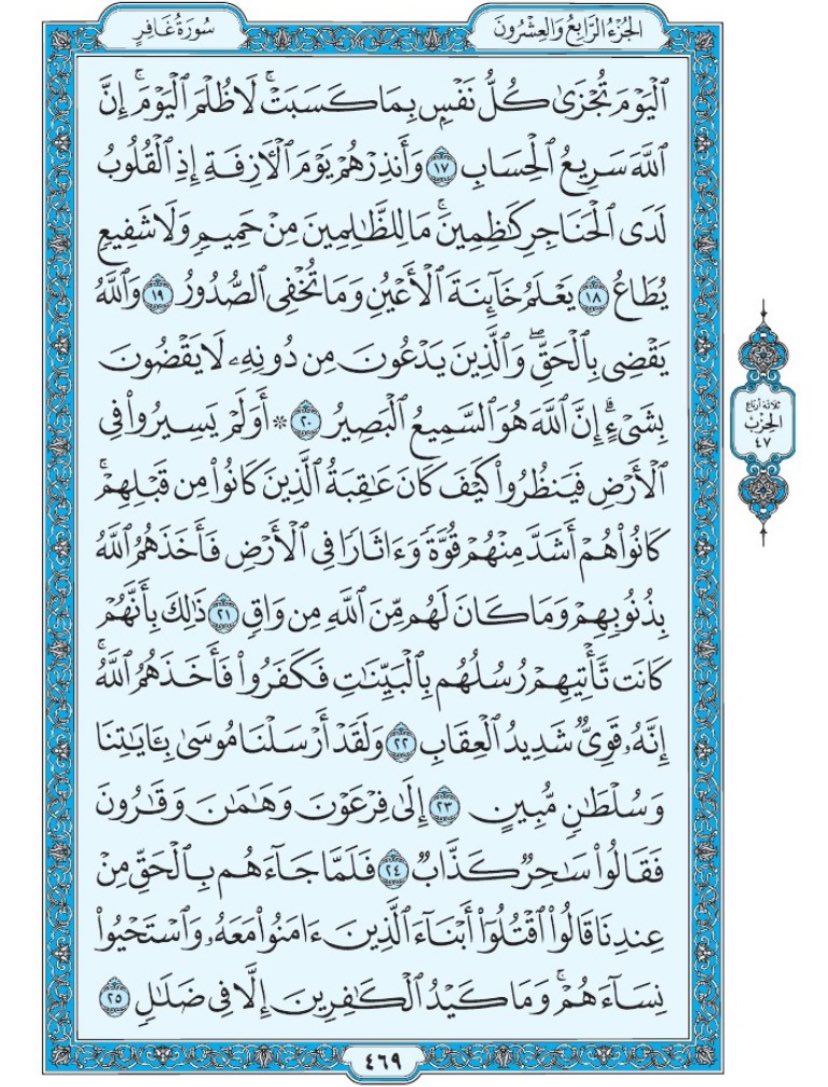 سُورَةُ غَافِرٍ
الجُزْءُ الرَّابِعُ وَالعِشْرُونَ
ٱلْيَوْمَ تُجْزَىٰ كُلُّ نَفْسٍۭ بِمَا كَسَبَتْۚ لَا ظُلْمَ ٱلْيَوْمَۚ إِنَّ
ٱللَّهَ سَرِيعُ ٱلْحِسَابِ ١٧ وَأَنذِرْهُمْ يَوْمَ ٱلْأَزِفَةِ إِذِ ٱلْقُلُوبُ
لَدَى ٱلْحَنَاجِرِ كَٰظِمِينَۚ مَا لِلظَّٰلِمِينَ مِنْ حَمِيمٍ وَلَا شَفِيعٍ
يُطَاعُ ١٨ يَعْلَمُ خَآئِنَةَ ٱلْأَعْيُنِ وَمَا تُخْفِى ٱلصُّدُورُ ١٩ وَٱللَّهُ
يَقْضِى بِٱلْحَقِّۖ وَٱلَّذِينَ يَدْعُونَ مِن دُونِهِۦ لَا يَقْضُونَ
بِشَىْءٍۗ إِنَّ ٱللَّهَ هُوَ ٱلسَّمِيعُ ٱلْبَصِيرُ ٢٠ ۞ أَوَلَمْ يَسِيرُوا۟ فِى
ٱلْأَرْضِ فَيَنظُرُوا۟ كَيْفَ كَانَ عَٰقِبَةُ ٱلَّذِينَ كَانُوا۟ مِن قَبْلِهِمْۚ
كَانُوا۟ هُمْ أَشَدَّ مِنْهُمْ قُوَّةً وَءَاثَارًا فِى ٱلْأَرْضِ فَأَخَذَهُمُ ٱللَّهُ
بِذُنُوبِهِمْ وَمَا كَانَ لَهُم مِّنَ ٱللَّهِ مِن وَاقٍ ٢١ ذَٰلِكَ بِأَنَّهُمْ
كَانَت تَّأْتِيهِمْ رُسُلُهُم بِٱلْبَيِّنَٰتِ فَكَفَرُوا۟ فَأَخَذَهُمُ ٱللَّهُۚ
إِنَّهُۥ قَوِىٌّ شَدِيدُ ٱلْعِقَابِ ٢٢ وَلَقَدْ أَرْسَلْنَا مُوسَىٰ بِـَٔايَٰتِنَا
وَسُلْطَٰنٍ مُّبِينٍ ٢٣ إِلَىٰ فِرْعَوْنَ وَهَٰمَٰنَ وَقَٰرُونَ
فَقَالُوا۟ سَٰحِرٌ كَذَّابٌ ٢٤ فَلَمَّا جَآءَهُم بِٱلْحَقِّ مِنْ
عِندِنَا قَالُوا۟ ٱقْتُلُوٓا۟ أَبْنَآءَ ٱلَّذِينَ ءَامَنُوا۟ مَعَهُۥ وَٱسْتَحْيُوا۟
نِسَآءَهُمْۚ وَمَا كَيْدُ ٱلْكَٰفِرِينَ إِلَّا فِى ضَلَٰلٍ ٢٥
ثلاثة أرباع
الحِزْب
٤٧
٤٦٩